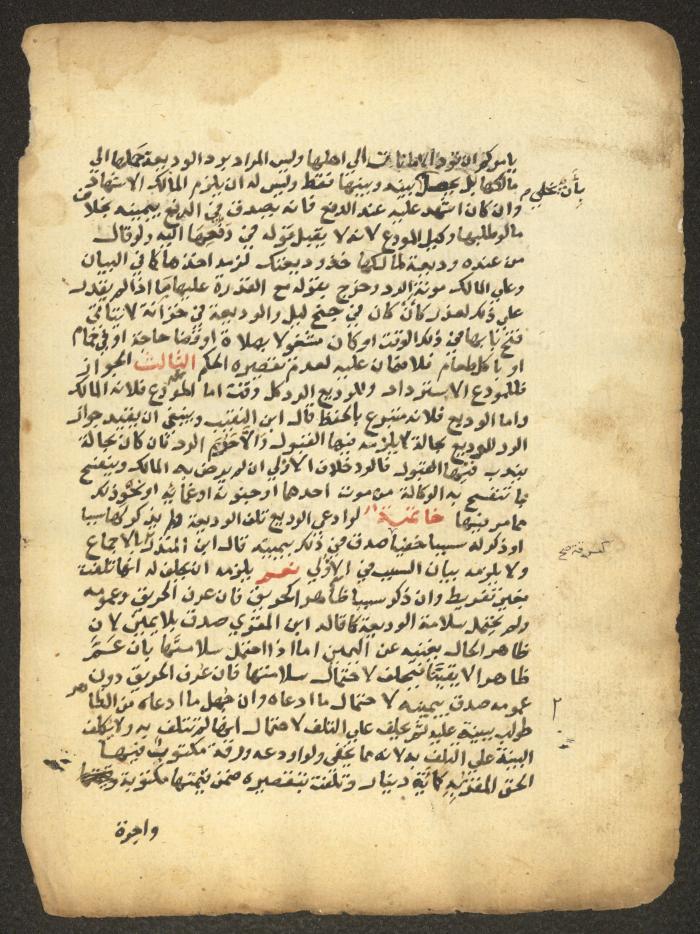 يامركم ان تودوا الامانات الي اهلها وليس المراد برد الوديعة حملها الي
مالكها بل يحصل بأن يخلي م بينه وبينها فقط وليس له ان يلزم المالك الاشهاد
وان كان اشهد عليه عند الدفع فانه يصدق في الدفع بيمينه بخلاف
ما لو طلبها وكيل المودع لانه لا يقبل قوله في دفعها اليه ولو قال
من عنده وديعة لمالكها خذ وديعتك لزمه اخذها كما في البيان
وعلي المالك مونة الرد وخرج بقوله مع القدرة عليها ما اذا لم يقدر
علي ذلك لعذر كأن كان في جنح ليل والوديعة في خزانة لا يتاتي
فتح بابها في ذلك الوقت او كان مشغولا بصلاة او قضا حاجة او في حمام
او باكل طعام فلا ضمان عليه لعدم تقصيره الحكم الثالث الجواز
فللمودع الاسترداد وللوديع الرد كل وقت اما المودع فلانه المالك
واما الوديع فلانه متبرع بالحفظ قال ابن النقيب وينبغي ان يقيد جواز
الرد للوديع بحالة لا يلزمه فيها القبول والا حرم الرد فان كان بحالة
يندب فيها القبول فالرد خلاف الاولي ان لم يرض به المالك وينفسخ
بما تنفسخ به الوكالة من موت احدهما او جنونه او اغمايه او نحو ذلك
مما مر فيها خاتمة لو ادعي الوديع تلف الوديعة ولم يذكر لها سببا
او ذكر له سببا خفيا كسرقة صح صدق في ذلك بيمينه قال ابن المنذر بالاجماع
ولا يلزمه بيان السبب في الاولي نعم يلزمه ان يحلف له انها تلفت
بغير تفريط وان ذكر سببا ظاهرا كحريق فان عرف الحريق وعمومه
ولم يحتمل سلامة الوديعة كما قاله ابن المقري صدق بلا يمين لان
ظاهر الحال يغنيه عن اليمين اما اذا احتمل سلامتها بان عم
ظاهرا لا يقينا فيحلف لاحتمال سلامتها فان عرف الحريق دون
عمومه صدق بيمينه لاحتمال ما ادعاه وان جهل ما ادعاه من الظاهر
طولب ببينة عليه ثم يحلف علي التلف لاحتمال انها لم تتلف به ولا يكلف
البينة علي التلف به لانه مما يخفي ولو اودعه ورقة مكتوب فيها
الحق المقر به كماية دينار وتلفت بتقصيره ضمن قيمتها مكتوبة
واجرة